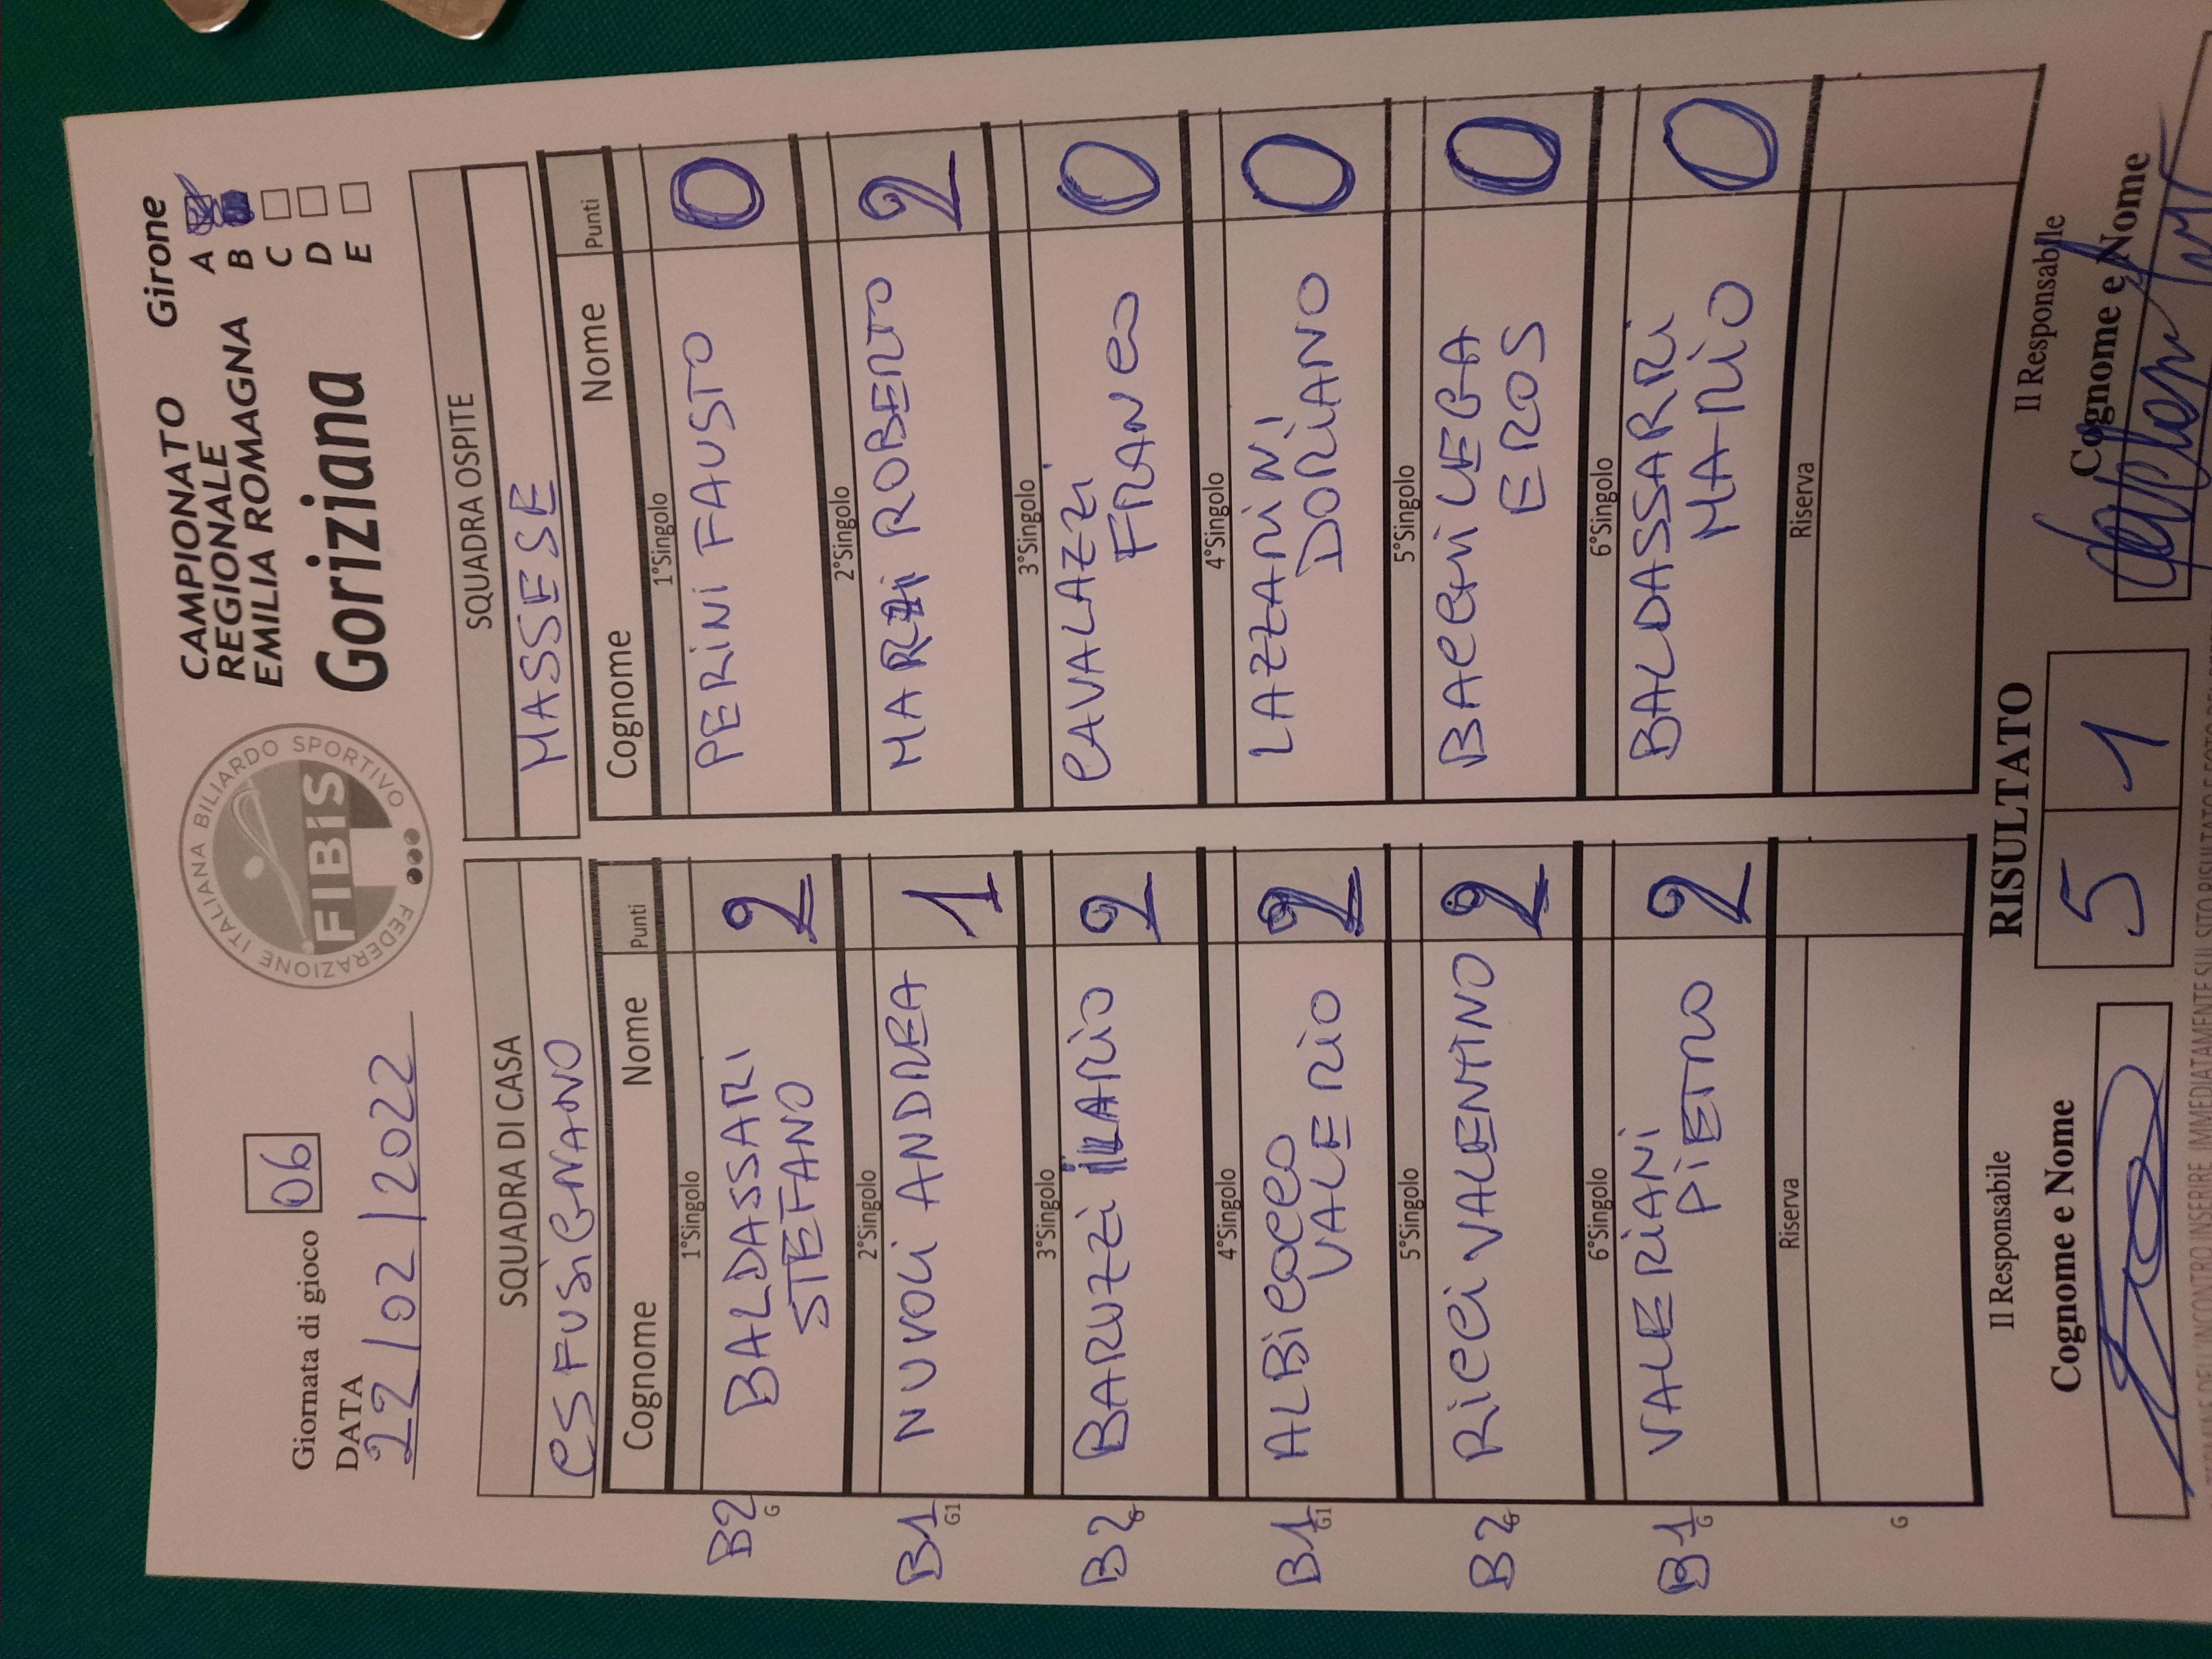 Giornata di gioco 06
DATA
22/02/2022
FEDERAZIONE ITALIANA BILIARDO SPORTIVO
FIBiS
CAMPIONATO
REGIONALE
EMILIA ROMAGNA
Goriziana
Girone
A
B
C
D
E
SQUADRA DI CASA
CS FUSiGNANO
Cognome Nome Punti
B2 G
1°Singolo
BALDASSARI
STEFANO
2
B1 G1
2°Singolo
NUVOLi ANDREA
1
B2
3°Singolo
BARUZZi iLARiO
2
B1 G1
4°Singolo
ALBiCOCCO
VALERiO
2
B2
5°Singolo
RiCCi VALENTINO
2
B1 G
6°Singolo
VALERiANi
PiETRO
2
G
Riserva
SQUADRA OSPITE
MASSESE
Cognome Nome Punti
1°Singolo
PERiNi FAUSTO
0
2°Singolo
MARZi ROBERTO
2
3°Singolo
CAVALAZZi
FRANCO
0
4°Singolo
LAZZARiNi
DORiANO
0
5°Singolo
BACCHiLEGA
EROS
0
6°Singolo
BALDASSARRi
MARiO
0
Riserva
Il Responsabile
Cognome e Nome
RISULTATO
5 1
Il Responsabile
Cognome e Nome